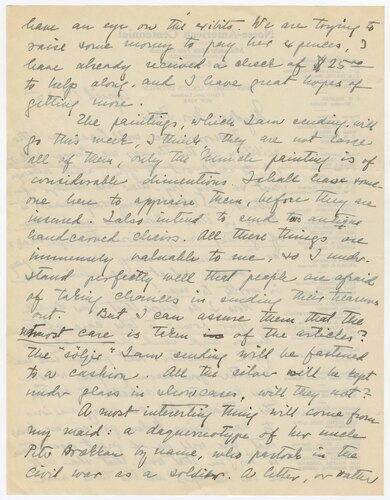 have an eye on the exibits. We are trying to
raise some money to pay her expences, I
have already received a check of $25.00
to help along, and I have great hopes of
getting more.
The paintings, which I am sending, will
go this week, I think, they are not large
all of them, only the Munich painting is of
considerable dimentions. I shall have some
one here to appraise them, before they are
insured. I also intend to send two antique
handcarved chairs. All these things are
immensely valuable to me, so I under-
stand perfectly well that people are afraid
of taking chances in sending their treasures
out. But I can assure them that the
utmost care is taken of the articles?
The "sölje" I am sending will be fastened
to a cushion. All the silver will be kept
under glass in showcases, will they not?
A most interesting thing will come from
my maid: a daguereotype of her uncle
by name, who partook in the
Civil war as a soldier. A letter, or rather